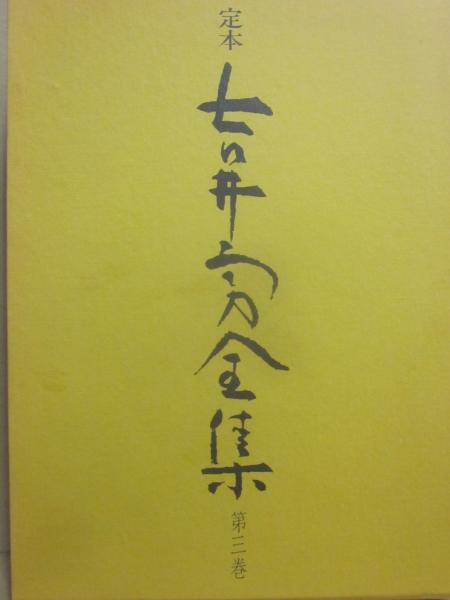 定本
吉井勇全集
第三巻